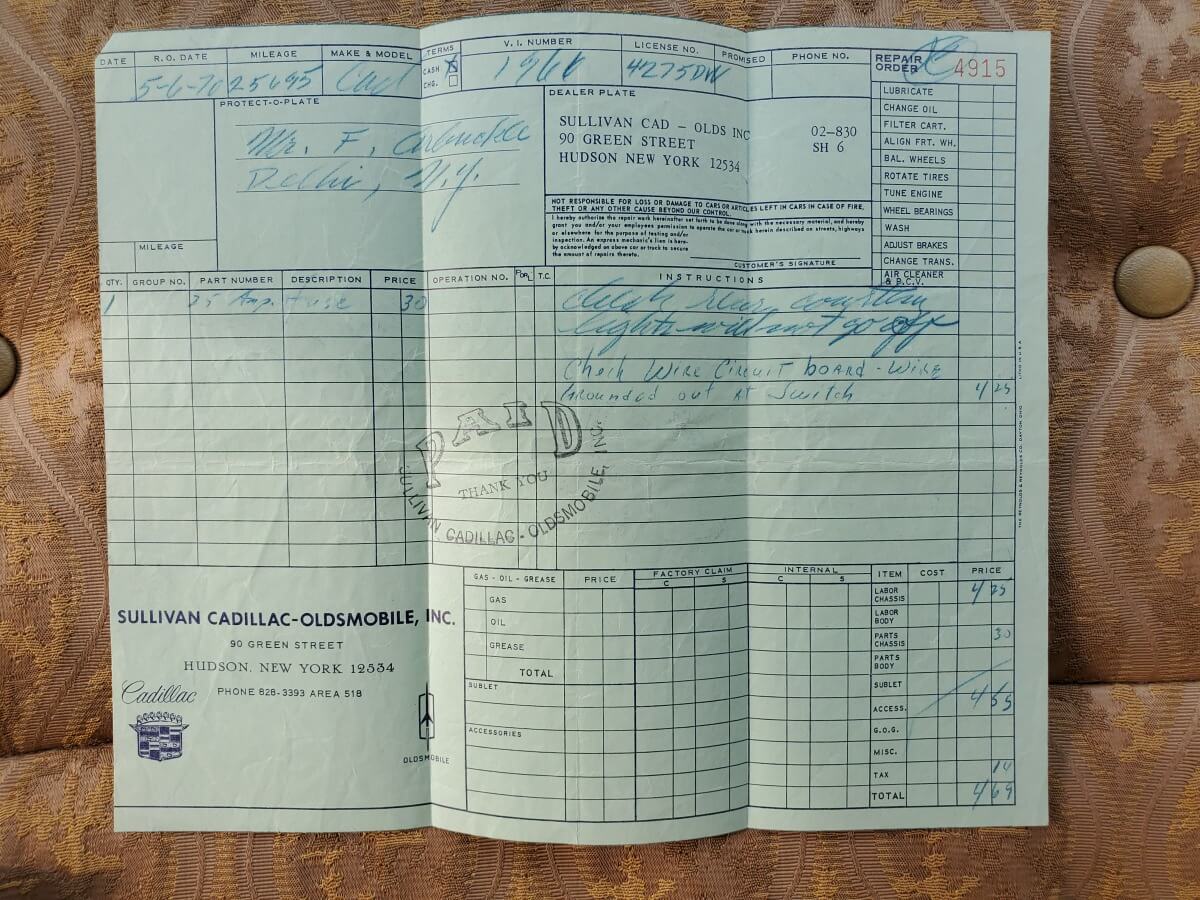 DATE R.O. DATE MILEAGE MAKE & MODEL TERMS V.I. NUMBER LICENSE NO. PROMISED PHONE NO. REPAIR ORDER 4915
5-6-70 25695 Cad CASH X CHG. 1968 4275DW
PROTECT-O-PLATE
Mr. F.
Delhi, N.Y.
MILEAGE
DEALER PLATE
SULLIVAN CAD – OLDS INC 02-830
90 GREEN STREET SH 6
HUDSON NEW YORK 12534
NOT RESPONSIBLE FOR LOSS OR DAMAGE TO CARS OR ARTICLES LEFT IN CARS IN CASE OF FIRE,
THEFT OR ANY OTHER CAUSE BEYOND OUR CONTROL.
I hereby authorize the repair work hereinafter set forth to be done along with the necessary material, and hereby
grant you and/or your employees permission to operate the car or truck herein described on streets, highways
or elsewhere for the purpose of testing and/or
inspection. An express mechanic's lien is here-
by acknowledged on above car or truck to secure
the amount of repairs thereto.
CUSTOMER'S SIGNATURE
LUBRICATE
CHANGE OIL
FILTER CART.
ALIGN FRT. WH.
BAL. WHEELS
ROTATE TIRES
TUNE ENGINE
WHEEL BEARINGS
WASH
ADJUST BRAKES
CHANGE TRANS.
AIR CLEANER
& P.C.V.
QTY. GROUP NO. PART NUMBER DESCRIPTION PRICE OPERATION NO. T.C. INSTRUCTIONS
1 25 Amp. Fuse 30
Check rear courtesy
lights will not go off
Check Wire Circuit board - Wire
Grounded out at Switch 4/25
PAID
THANK YOU
SULLIVAN CADILLAC - OLDSMOBILE, INC.
LITHO IN U.S.A.
THE REYNOLDS & REYNOLDS CO. DAYTON OHIO
SULLIVAN CADILLAC-OLDSMOBILE, INC.
90 GREEN STREET
HUDSON, NEW YORK 12534
PHONE 828-3393 AREA 518
Cadillac
OLDSMOBILE
GAS - OIL - GREASE PRICE FACTORY CLAIM C S INTERNAL C S ITEM COST PRICE
GAS
OIL
GREASE
TOTAL
SUBLET
ACCESSORIES
LABOR CHASSIS 4/25
LABOR BODY
PARTS CHASSIS 30
PARTS BODY
SUBLET
ACCESS. 4/55
G.O.G.
MISC.
TAX 14
TOTAL 4/69